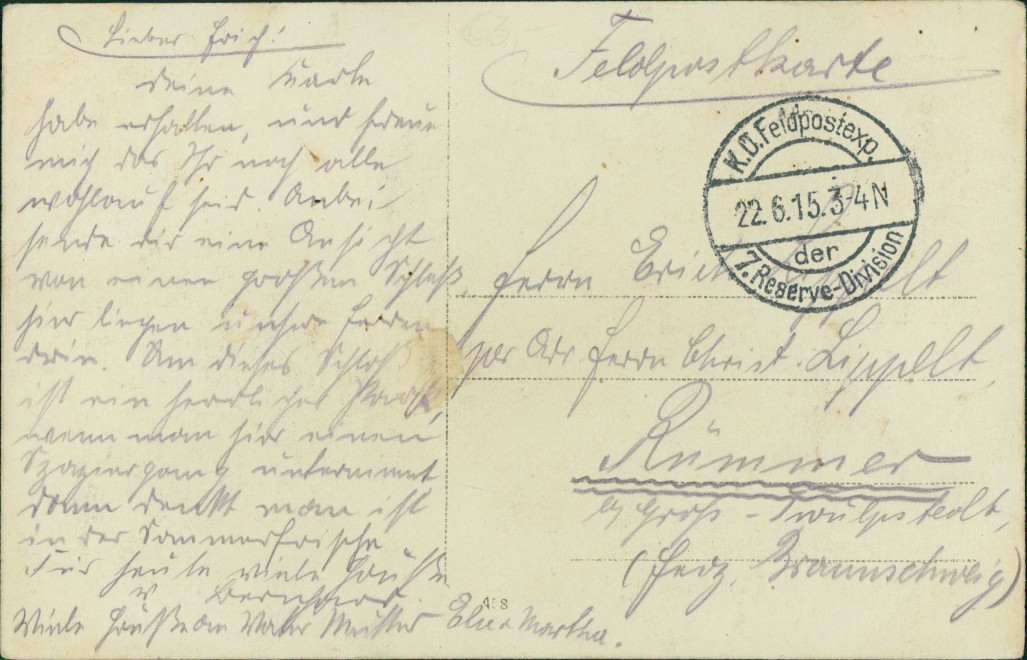 Lieber Erich!
Deine Karte
habe erhalten, und freue
mich das Ihr noch alle
wohlauf seid. Anbei
sende dir eine Ansicht
von einen großen Schloß,
hier liegen unsere Herren
drin. Um dieses Schloß
ist ein herrlicher Park,
wenn man hier einen
Spaziergang unternimmt
dann denkt man ist
in der Sommerfrische
Für heute viele Grüße
v Bernhard.
Viele Grüße an Vater Mutter Else u Martha.
Feldpostkarte
K.D. Feldpostexp.
22.6.15. 3-4 N
der
7. Reserve-Division
Herrn Erich Lippelt
per Adr Herrn Christ. Lippelt,
Rümmer
b/ Groß-Twülpstedt,
(Herz. Braunschweig)
458